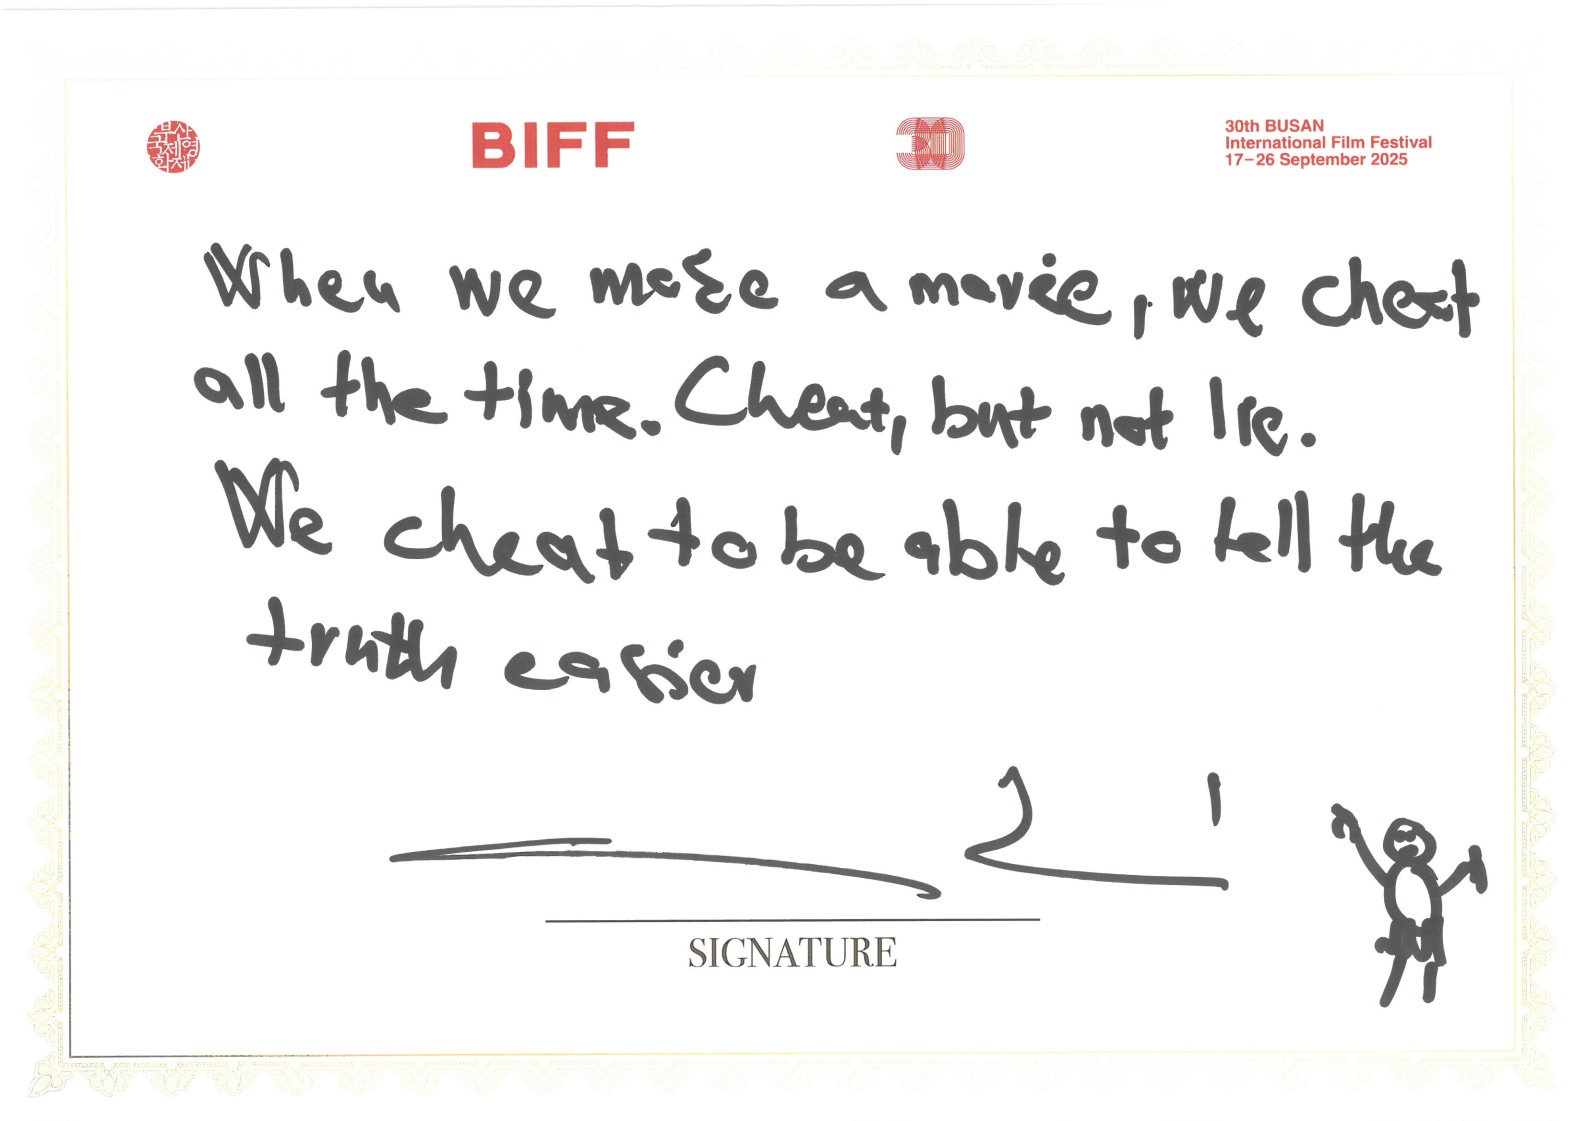 부산
국제영
화제
BIFF
30
30th BUSAN
International Film Festival
17–26 September 2025
When we make a movie, we cheat
all the time. Cheat, but not lie.
We cheat to be able to tell the
truth easier
SIGNATURE